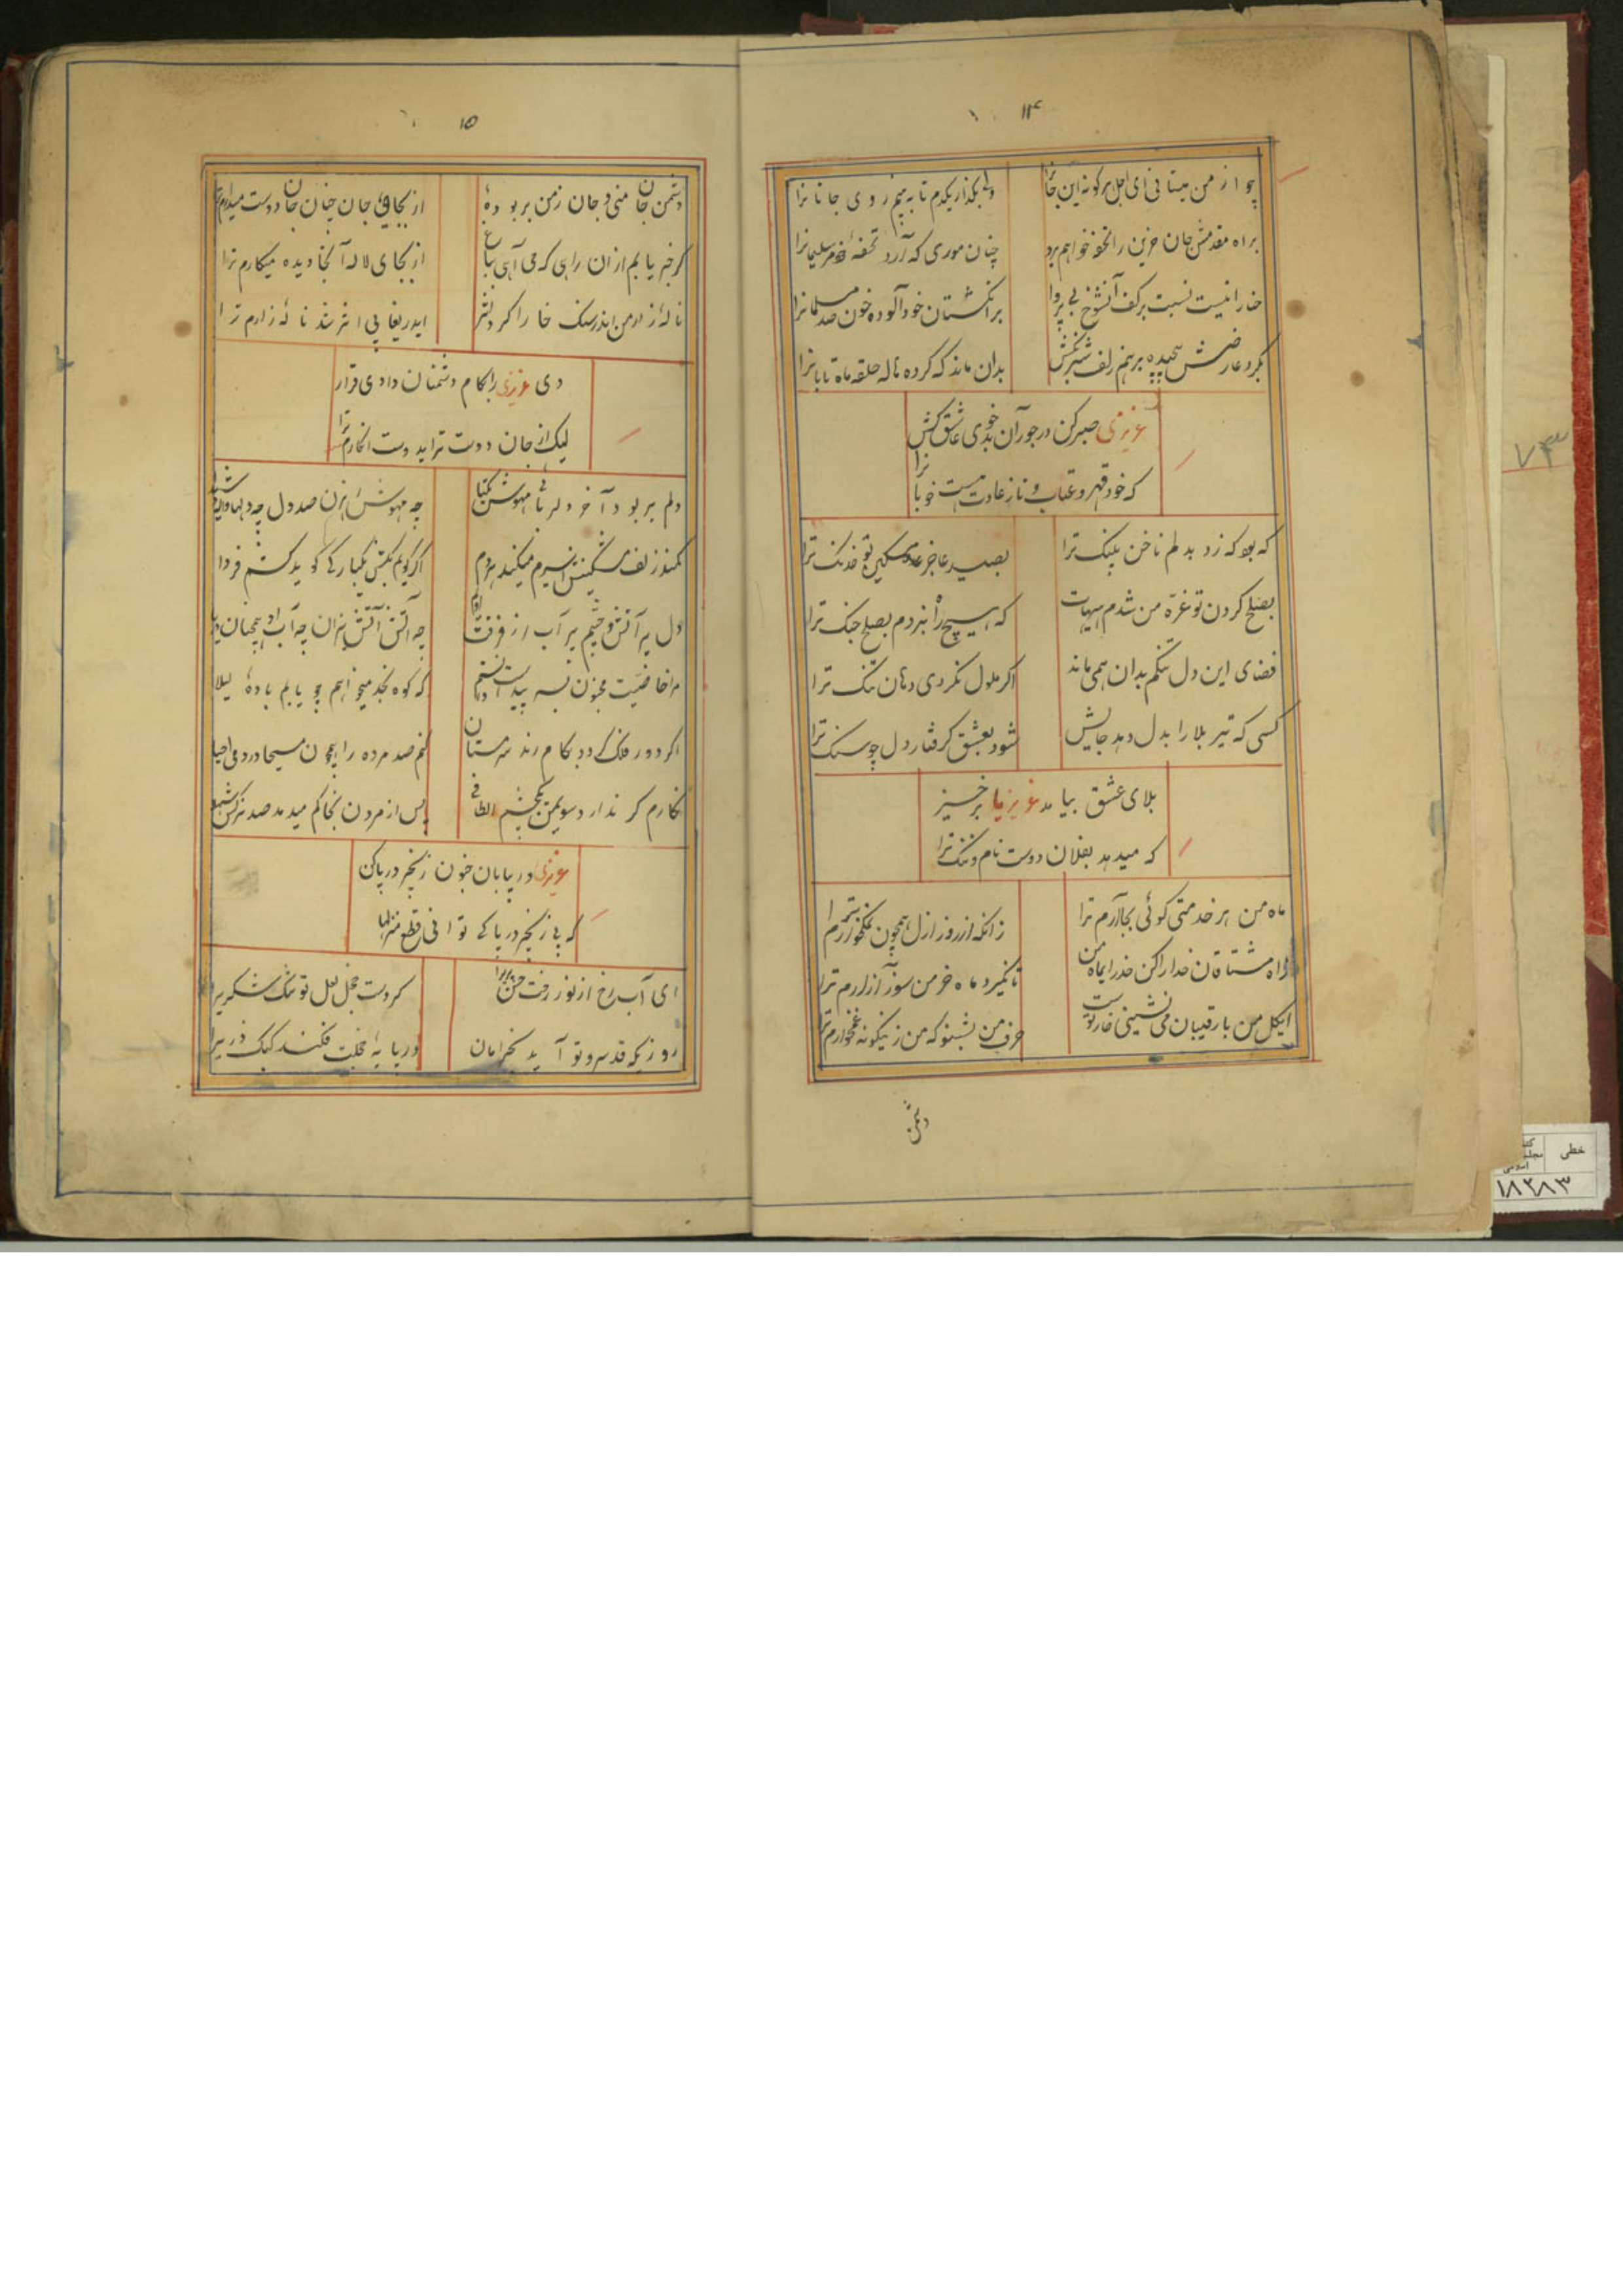 ۱۴
چو از من میستانی ای اجل هر کونه این جانرا
ولی بگذار یکدم تا به بینم روی جانانرا
براه مقدمش جان حزین را تحفه خواهم برد
چنان موری که آرد تحفهٔ سلیمانرا
حنا را نیست نسبت بر کف آنشوخ بی پروا
بر انگشتان خود آلوده خون صد مسلمانرا
بگرد عارضش پیچیده بر هم زلف شبرنگش
بدان ماند که کرده هاله حلقه ماه تابانرا
عزیزی صبر کن در جور آن بدخوی عاشق کش
که خود قهر و عتاب و ناز عادت هست خوبانرا
که بود که زد بدلم ناخن پلنک ترا
بصید عاجز مسکین تو خدنک ترا
بصلح کردن تو غره من شدم هیهات
که هیچ راه نبردم بصلح جنک ترا
فضای این دل تنگم بدان همی ماند
اگر ملول نکردی دهان تنک ترا
کسی که تیر بلا را بدل دهد جایش
شود بعشق گرفتار دل چو سنک ترا
بلای عشق بیامد عزیزیا برخیز
که میدهد بفلان دوست نام و ننک ترا
ماه من هر خدمتی کوئی بجا آرم ترا
زانکه از روز ازل همچون نمکخوارم ترا
آه مشتاقان خدا را کن حذر ایماه من
تا نگیرد ماه خرمن سوز آزارم ترا
ایکل من با رقیبان می نشینی خار توست
حرف من بشنو که من زینگونه غمخوارم ترا
دشمن
۱۵
دشمن جان منی و جان ز من بربودهٔ
از کجا جان چنان جان دوست میدارم ترا
کر خبر یابم از آن راهی که می آئی بباغ
از بجای لاله آنجا دیده میکارم ترا
نالهٔ زار من اندر سنک خارا کرد اثر
ایدریغا بی اثر شد نالهٔ زارم ترا
دی عزیزی را بکام دشمنان دادی قرار
لیک از جان دوست تر اید وست انگارم ترا
دلم بربود آخر دلربائی مهوشی یکتا
چه مهوش رهزن صد دل چه دلها
کمند زلف مشکینش اسیرم میکند هردم
اگر گویم بکش یکبارگی گوید کشم فردا
دل پر آتش و چشم پر آب از فرقت
چه آتش آتش نیران چه آب
مرا خاصیت مجنون بسر پیداست
که کوه نجد میخواهم چو یابم بادهٔ لیلا
اگر دور فلک گردد بکام رند سرمستان
کنم صد مرده را همچون مسیحا در دمی احیا
نگارم کر ندارد سویمن چشم الطافی
پس از مردن بخاکم میدمد صد نرکس شهلا
عزیزی در بیابان خون زنجیر در پا کن
که بی زنجیر در پا کی توانی قطع منزلها
ای آب رخ از نور رخت
کردست خجل لعل تو تنک شکریرا
روزیکه قد سرو تو آید بخرامان
در پایهٔ خجلت فکند کبک دریرا
۷۴
خطی
۱۸۲۸۳